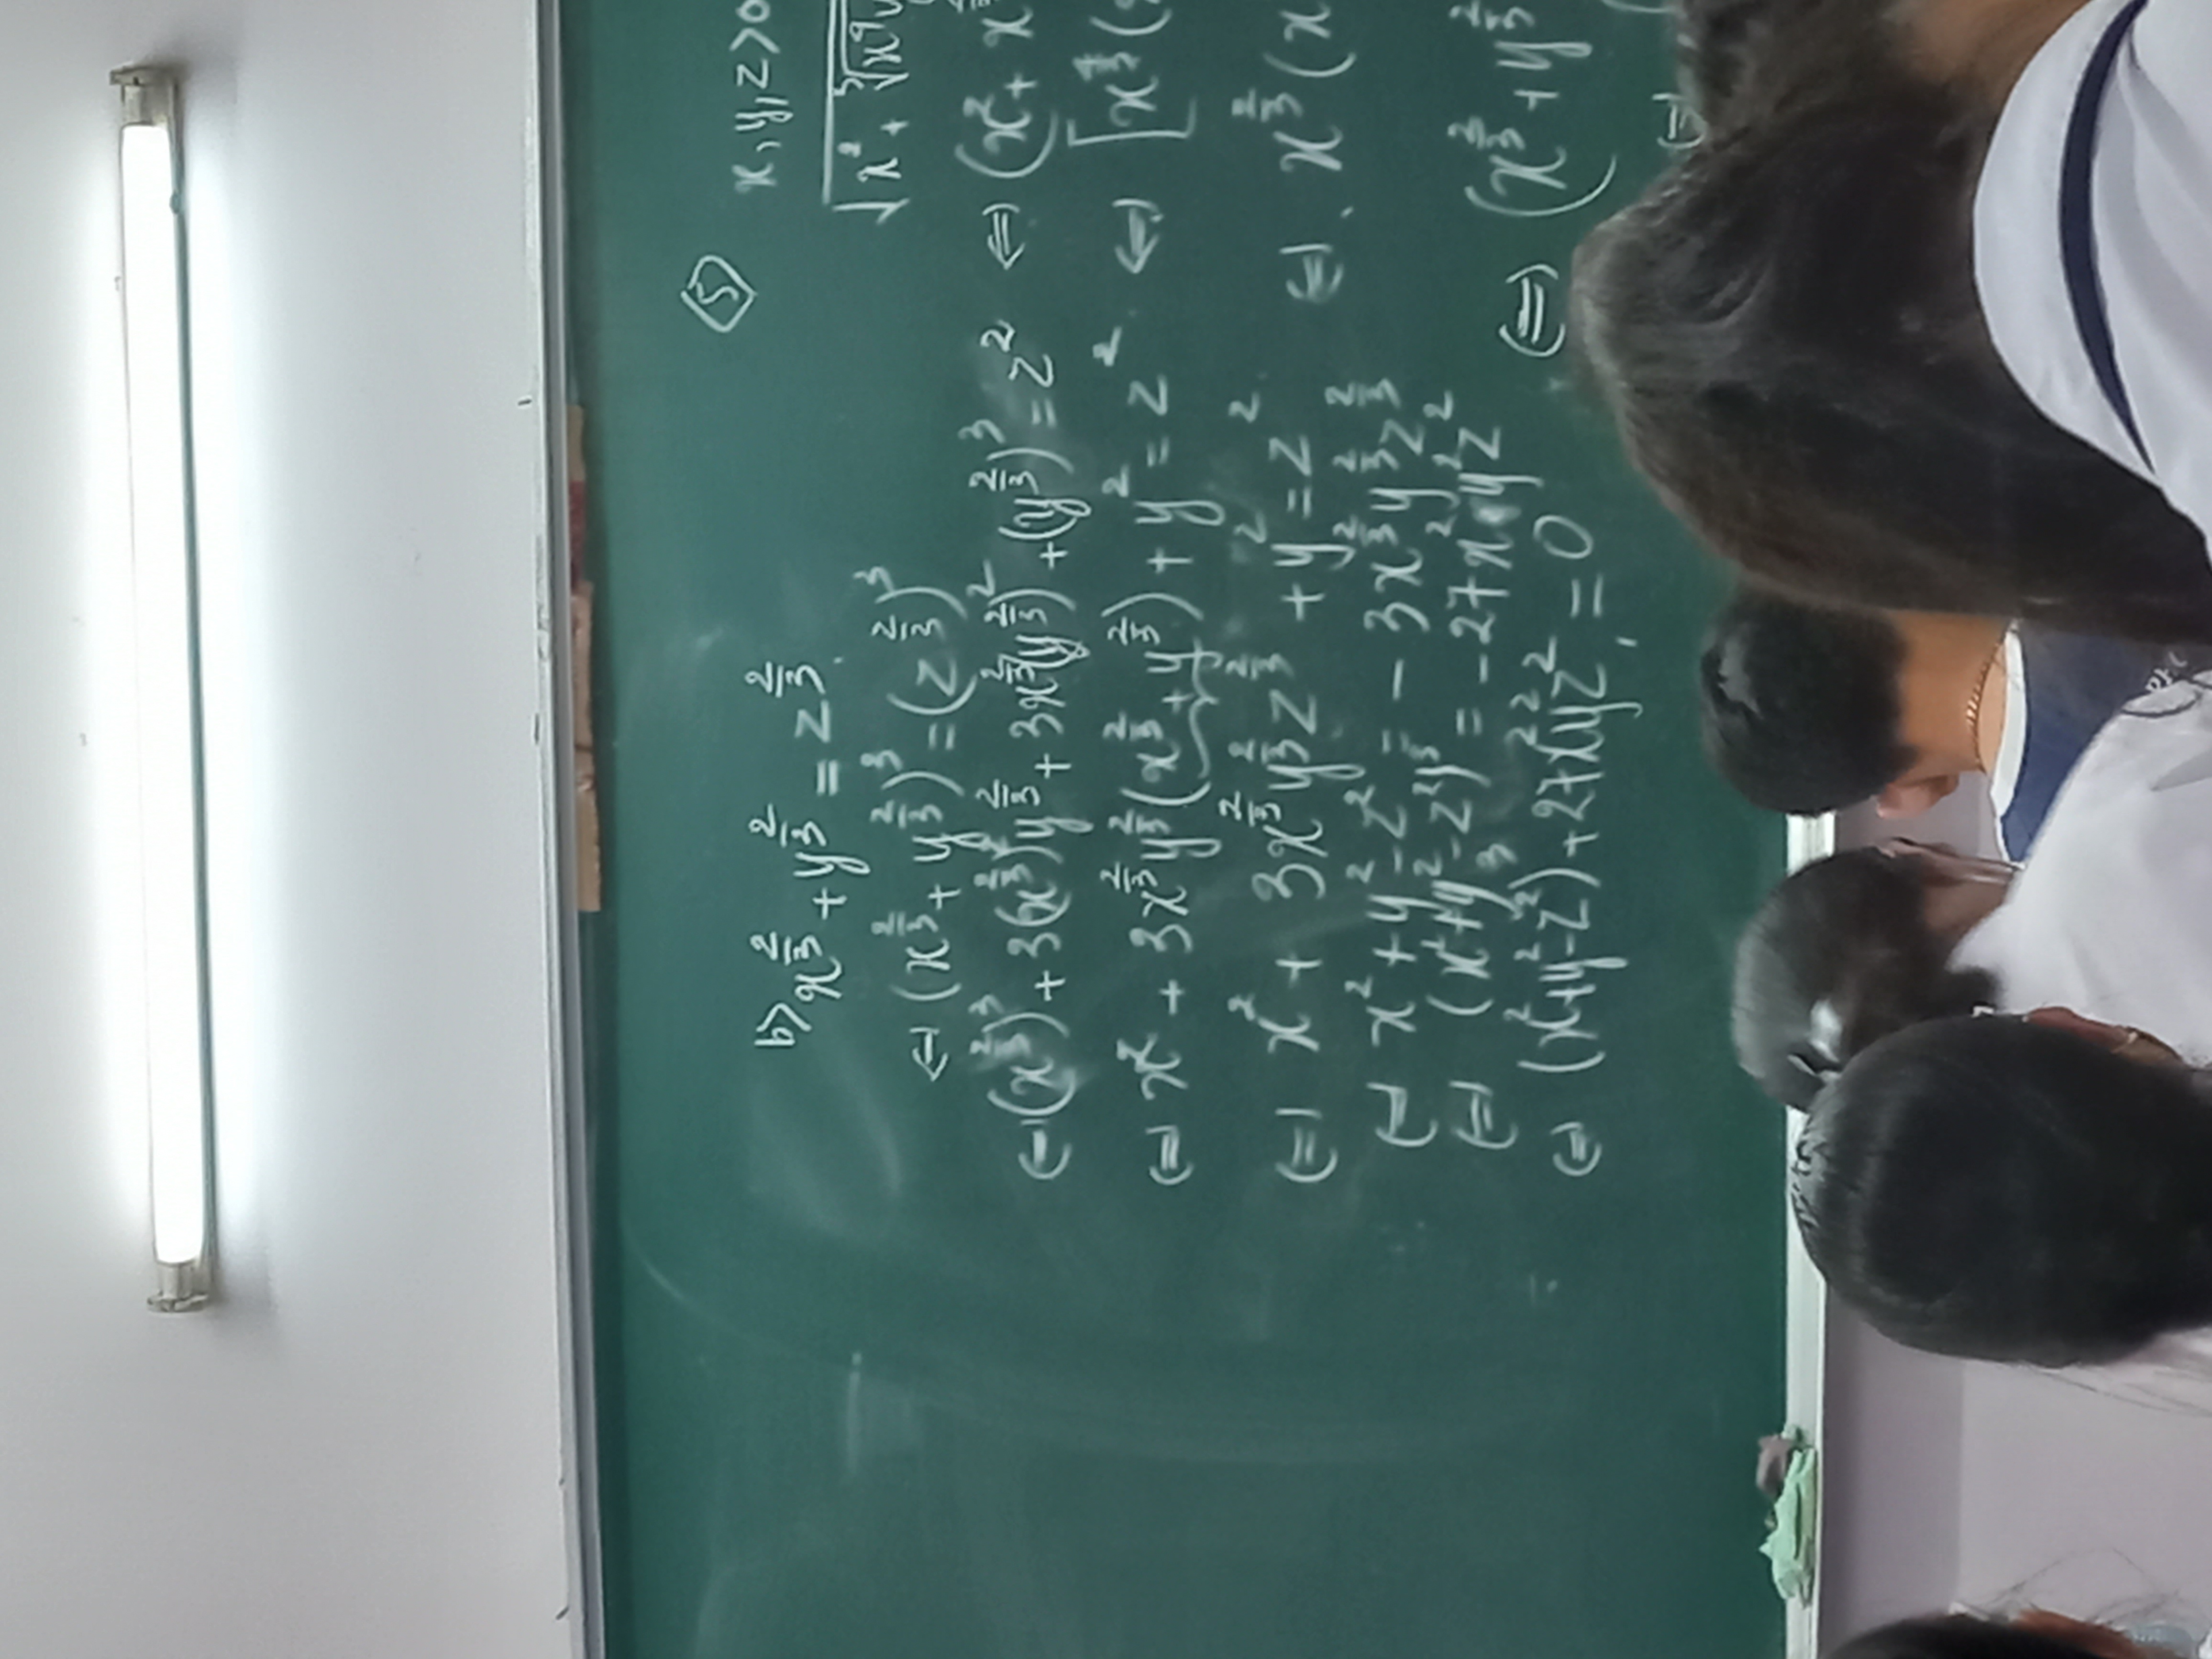 b> x^{2/3} + y^{2/3} = z^{2/3}.
⇔ (x^{2/3} + y^{2/3})^3 = (z^{2/3})^3
⇔ (x^{2/3})^3 + 3(x^{2/3})^2 y^{2/3} + 3x^{2/3}(y^{2/3})^2 + (y^{2/3})^3 = z^2
⇔ x^2 + 3x^{2/3}y^{2/3}(x^{2/3} + y^{2/3}) + y^2 = z^2
⇔ x^2 + 3x^{2/3}y^{2/3}z^{2/3} + y^2 = z^2
⇔ x^2 + y^2 - z^2 = -3x^{2/3}y^{2/3}z^{2/3}
⇔ (x^2 + y^2 - z^2)^3 = -27x^2y^2z^2
⇔ (x^2 + y^2 - z^2)^3 + 27x^2y^2z^2 = 0
5
x, y, z > 0
⇔ (x^2 + x
⇔ [x^{4/3}(
⇔ x^{2/3}(x
⇔ (x^{2/3} + y^{2/3}
⇔